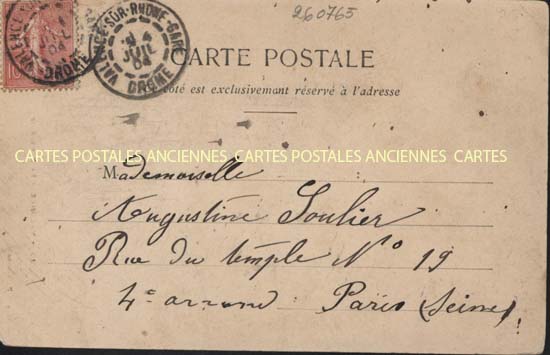 260765
VALENCE-SUR-RHONE-GARE
4
JUIL
04
DROME
10
CARTE POSTALE
côté est exclusivement réservé à l'adresse
CARTES POSTALES ANCIENNES CARTES POSTALES ANCIENNES CARTES
Mademoiselle
Augustine Soulier
Rue du temple N° 19
4e arrond Paris (Seine)